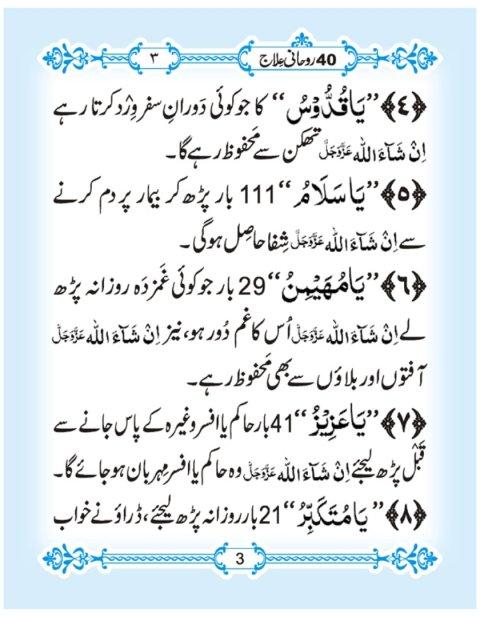 40 روحانی علاج
۳
﴿٤﴾ ”یَا قُدُّوْسُ“ کا جو کوئی دَورانِ سفر وِرْد کرتا رہے
اِنْ شَآءَ اللہ عَزَّوَجَلَّ تھکن سے مَحفوظ رہے گا۔
﴿٥﴾ ”یَا سَلَامُ“ 111 بار پڑھ کر بیمار پر دم کرنے
سے اِنْ شَآءَ اللہ عَزَّوَجَلَّ شِفا حاصِل ہوگی۔
﴿٦﴾ ”یَا مُهَیْمِنُ“ 29 بار جو کوئی غَمزدَہ روزانہ پڑھ
لے اِنْ شَآءَ اللہ عَزَّوَجَلَّ اُس کا غم دُور ہو، نیز اِنْ شَآءَ اللہ عَزَّوَجَلَّ
آفتوں اور بلاؤں سے بھی مَحفوظ رہے۔
﴿٧﴾ ”یَا عَزِیْزُ“ 41 بار حاکم یا افسر وغیرہ کے پاس جانے سے
قَبْل پڑھ لیجئے اِنْ شَآءَ اللہ عَزَّوَجَلَّ وہ حاکم یا افسر مِہربان ہوجائے گا۔
﴿٨﴾ ”یَا مُتَکَبِّرُ“ 21 بار روزانہ پڑھ لیجئے، ڈراؤنے خواب
3